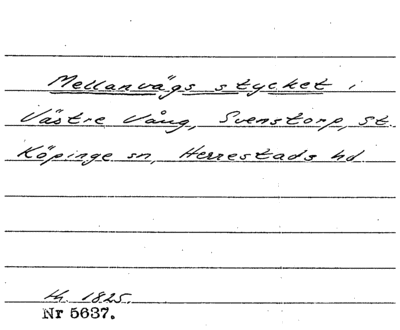 Mellanvägs stycket i
Västre Vång, Svenstorp, St.
Köpinge sn, Herrestads hd.
1825.
Nr 5637.